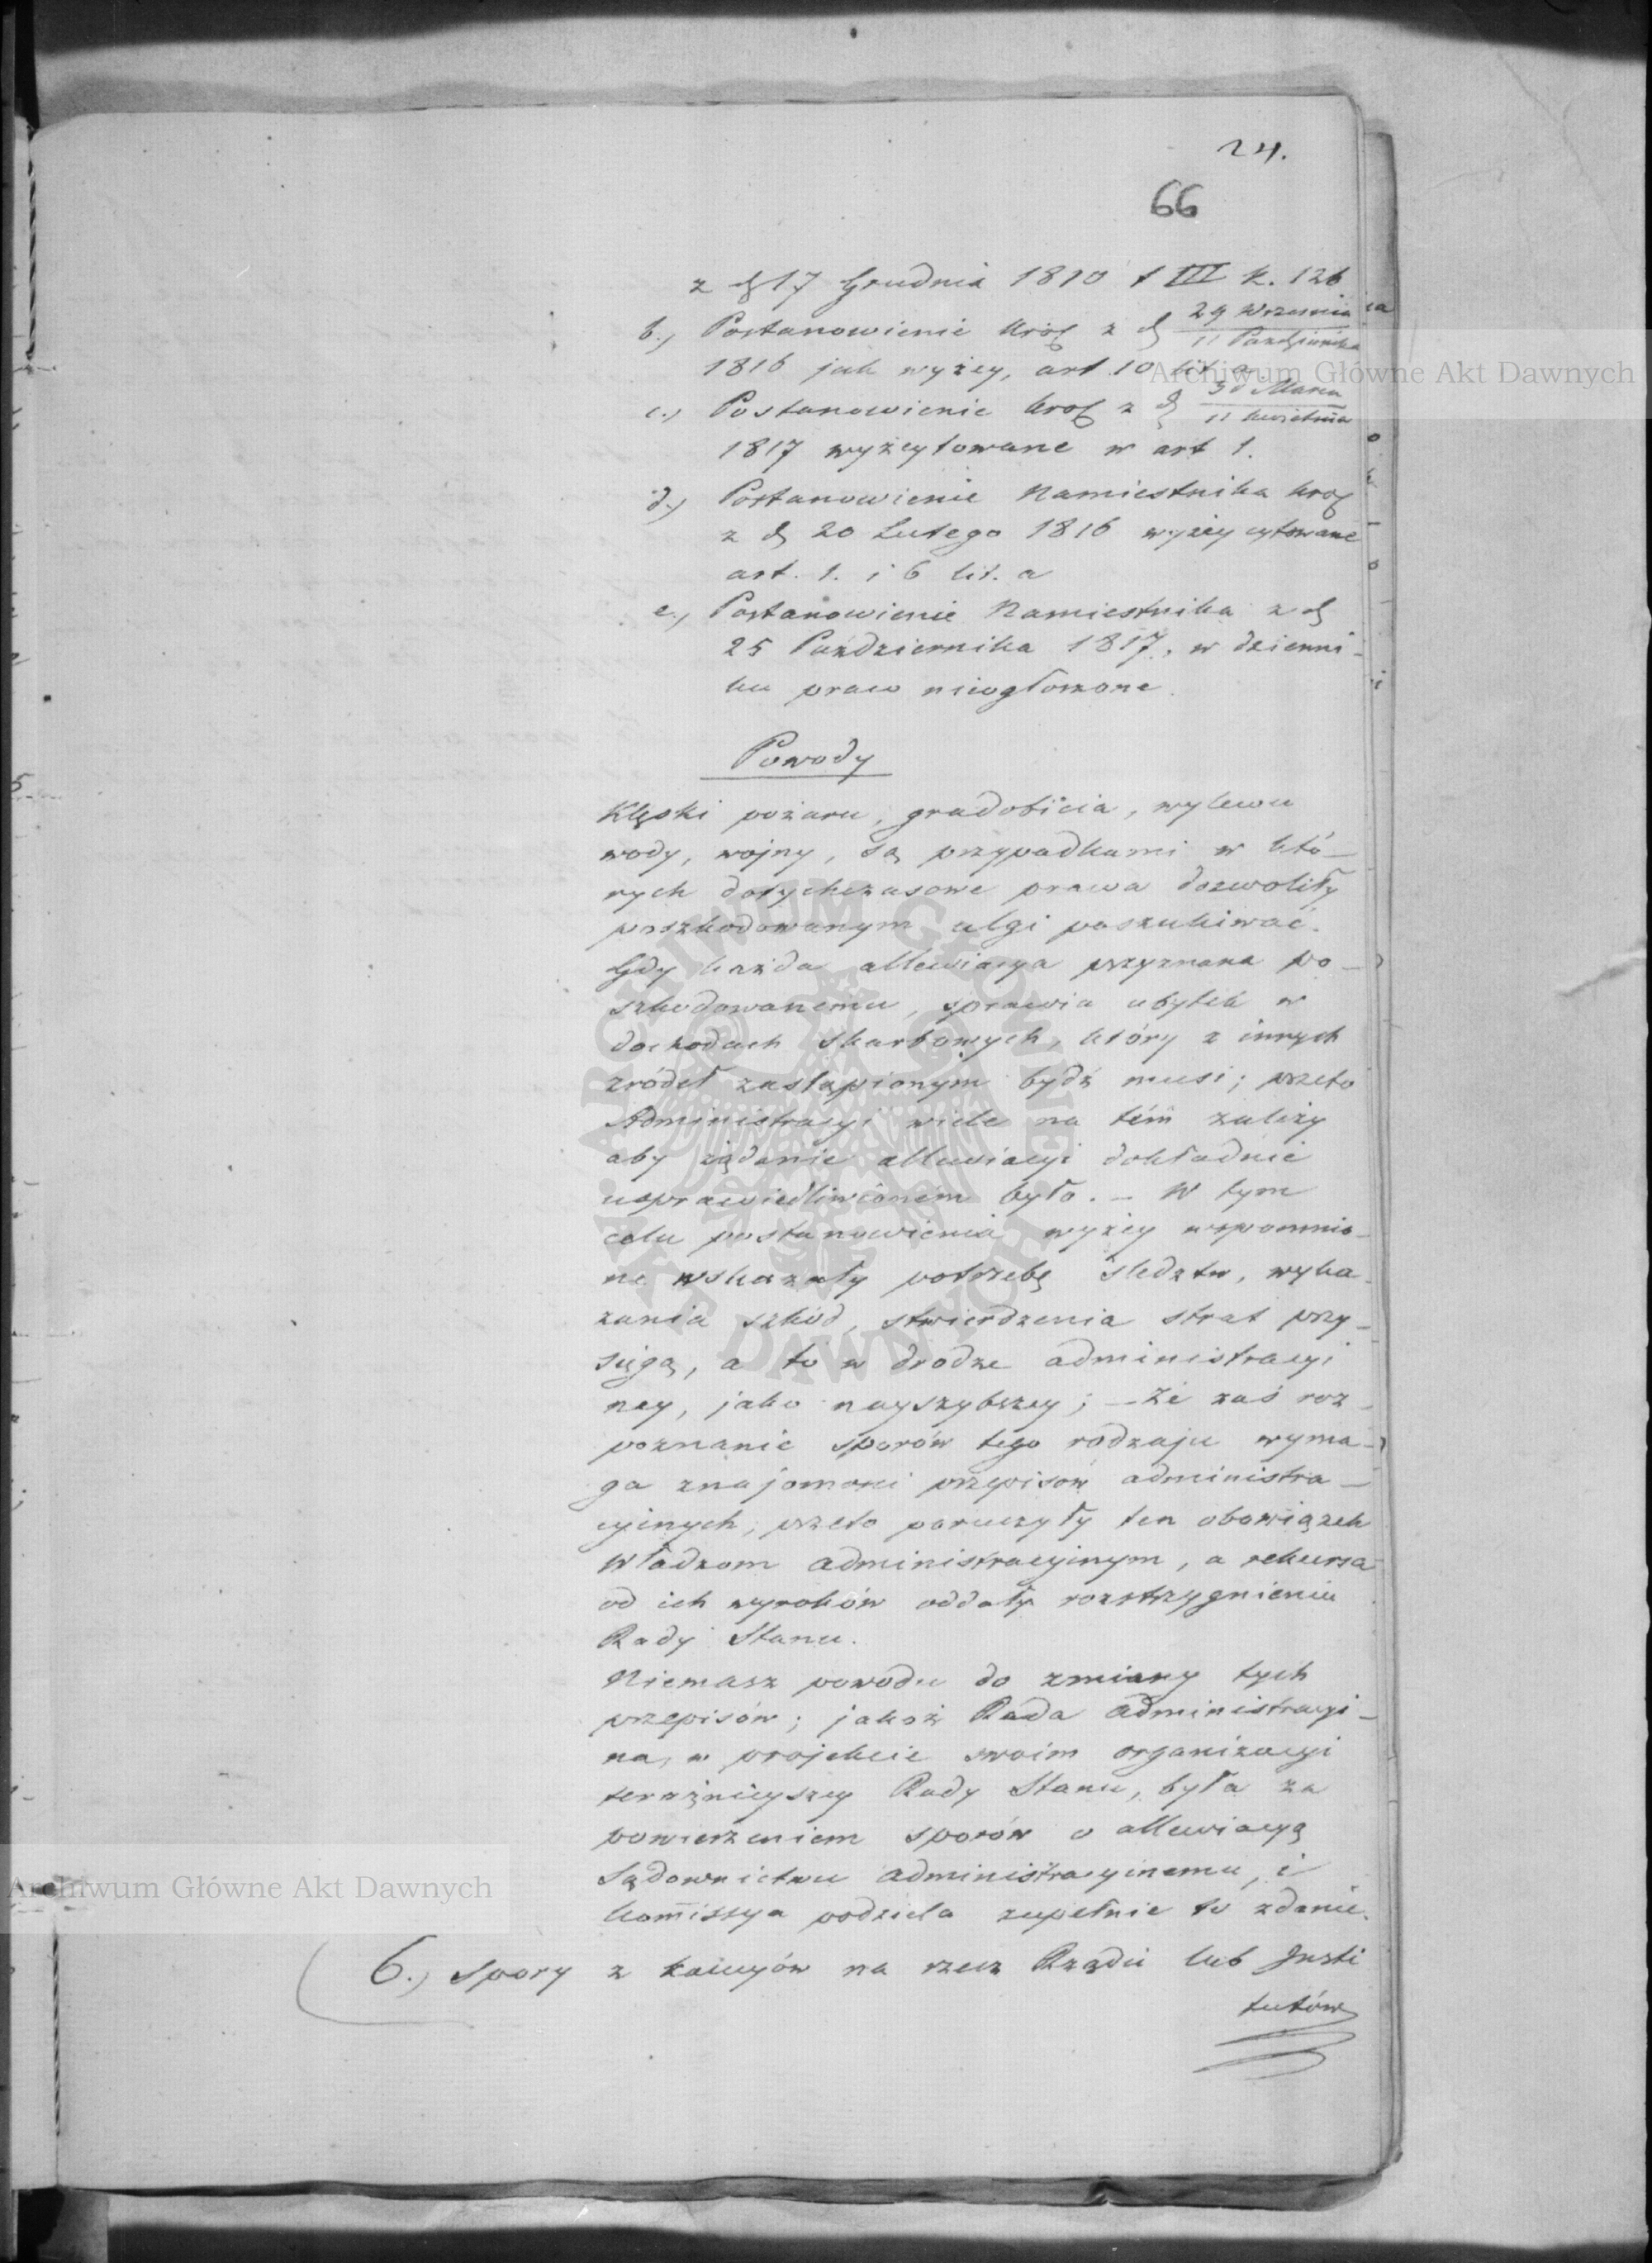 24.
66
z d 17 Grudnia 1810 t III k. 126
b.) Postanowienie Król z d 29 Września
11 Październka
1816 jak wyżey, art. 10 lit. a.
c.) Postanowienie król z d 30 Marca
11 kwietnia
1817 wyżcytowane w art 1.
d.) Postanowienie Namiestnika król
z d 20 Lutego 1816 wyżey cytowane
art. 1. i 6 lit. a
e.) Postanowienie Namiestnika z d
25 Października 1817, w dzienni-
ku praw nieogłoszone.
Powody
Klęski pożaru, gradobicia, wylewu
wody, wojny, są przypadkami w któ-
rych dotychczasowe prawa dozwoliły
poszkodowanym ulgi poszukiwać.
Gdy każda allewiacya przyznana po-
szkodowanemu, sprawia ubytek w
dochodach skarbowych, który z innych
zródeł zastąpionym bydź musi; przeto
Administracyi wiele na tém zależy
aby żądanie allewiacyi dokładnie
usprawiedliwioném było. – W tym
celu postanowienia wyżey wspomnio-
ne wskazały potrzebę śledztw, wyka-
zania szkód, stwierdzenia strat przy-
sięgą, a to w drodze administracyi
ney, jako nayszybszey; – Że zaś roz-
poznanie sporów tego rodzaju wyma-
ga znajomości przepisów administra-
cyinych, przeto poruczyły ten obowiązek
Władzom administracyinym, a rekursa
od ich wyroków oddały rozstrzygnieniu
Rady Stanu.
Niemasz powodu do zmiany tych
przepisów; jakoż Rada Administracyi-
na, w projekcie swoim organizacyi
teraźnieyszey Rady Stanu, była za
powierzeniem sporów o allewiacyą
Sądownictwu administracyinemu, i
kommissya podziela zupełnie to zdanie.
6.) Spory z kaucyów na rzecz Rządu lub Insti
tutów
Archiwum Główne Akt Dawnych
Archiwum Główne Akt Dawnych
ARCHIWUM GŁÓWNE AKT DAWNYCH